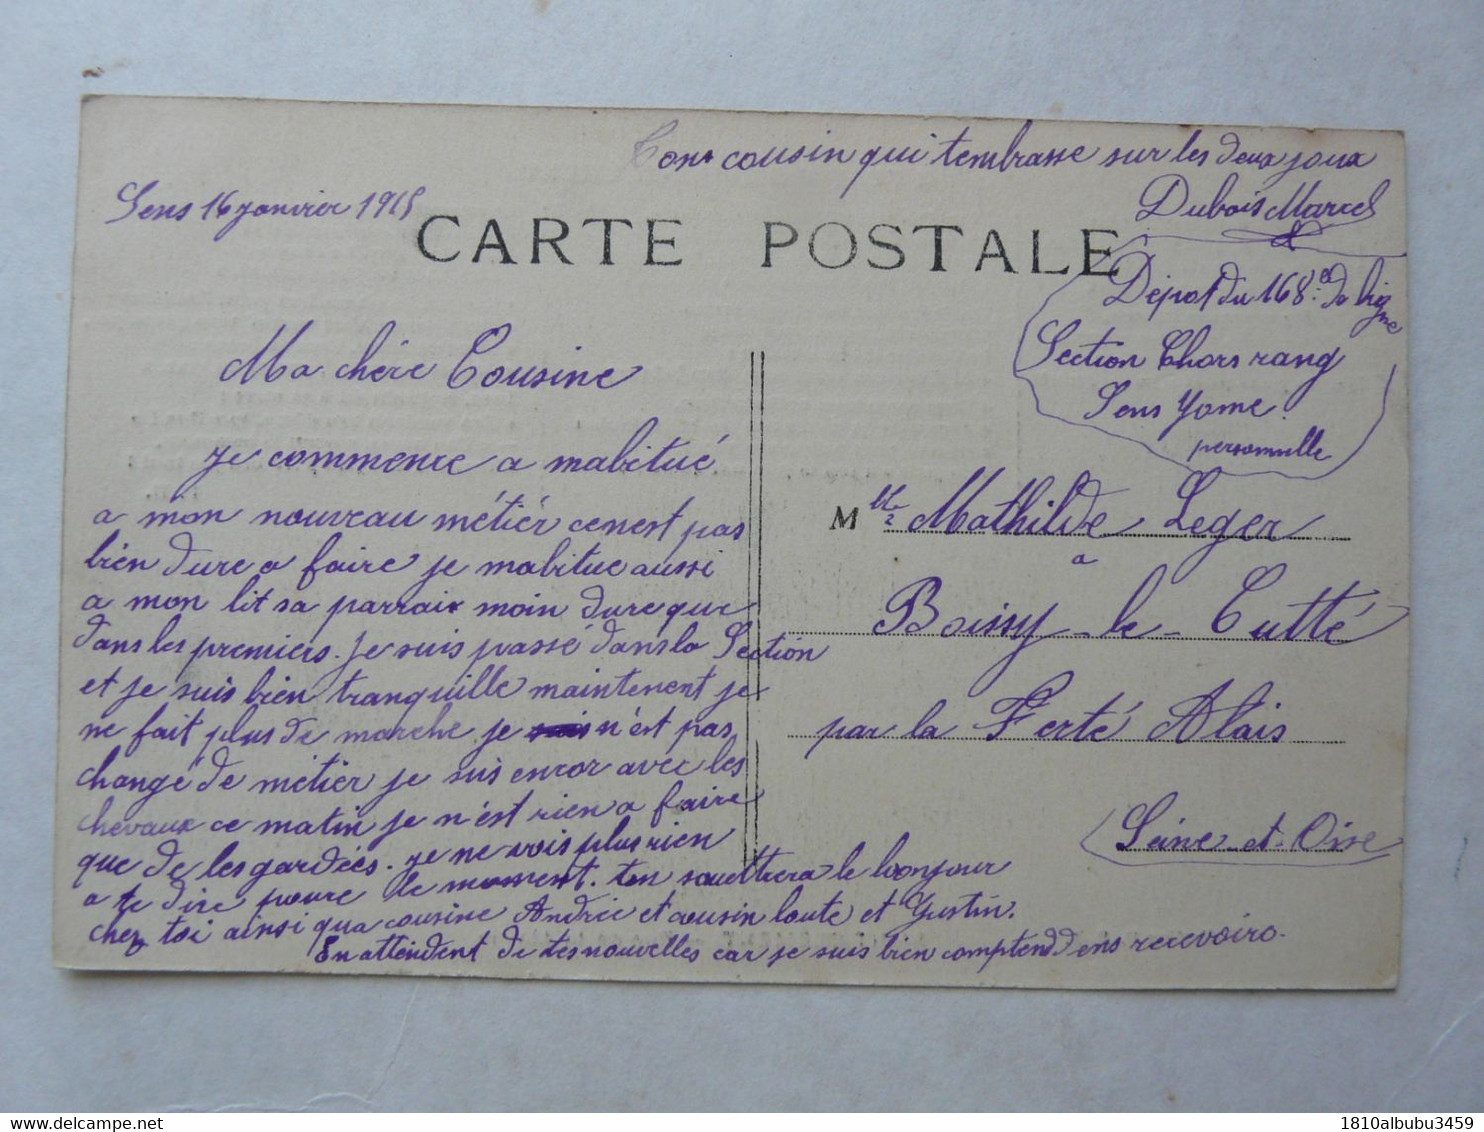 Sens 16 janvier 1915
CARTE POSTALE
Ma chére Cousine
je commence a mabitué
a mon nouveau métiér cenest pas
bien dure a faire je mabitue aussi
a mon lit sa parraix moin dure que
dans les premiers. Je suis passé dans la Section
et je suis bien tranquille maintenent je
ne fait plus de marche je n'est pas
changé de métier je suis encor avec les
chevaux ce matin je n'est rien a faire
que de les gardées. je ne vois plus rien
a te dire poure le moment. ten souettera le bonjour
chez toi ainsi qua cousine Andrée et cousin loute et Justin.
En attendent de tes nouvelles car je suis bien comptend dens recevoire.
Ton cousin qui tembrasse sur les deux joux
Dubois Marcel
Dépot du 168e de lig
ne
Section Chors rang
Sens Yonne
personnelle
Mlle Mathilde Leger
a
Boissy-le-Cutté
par la Ferté Alais
Seine-et-Oise
1810albubu3459